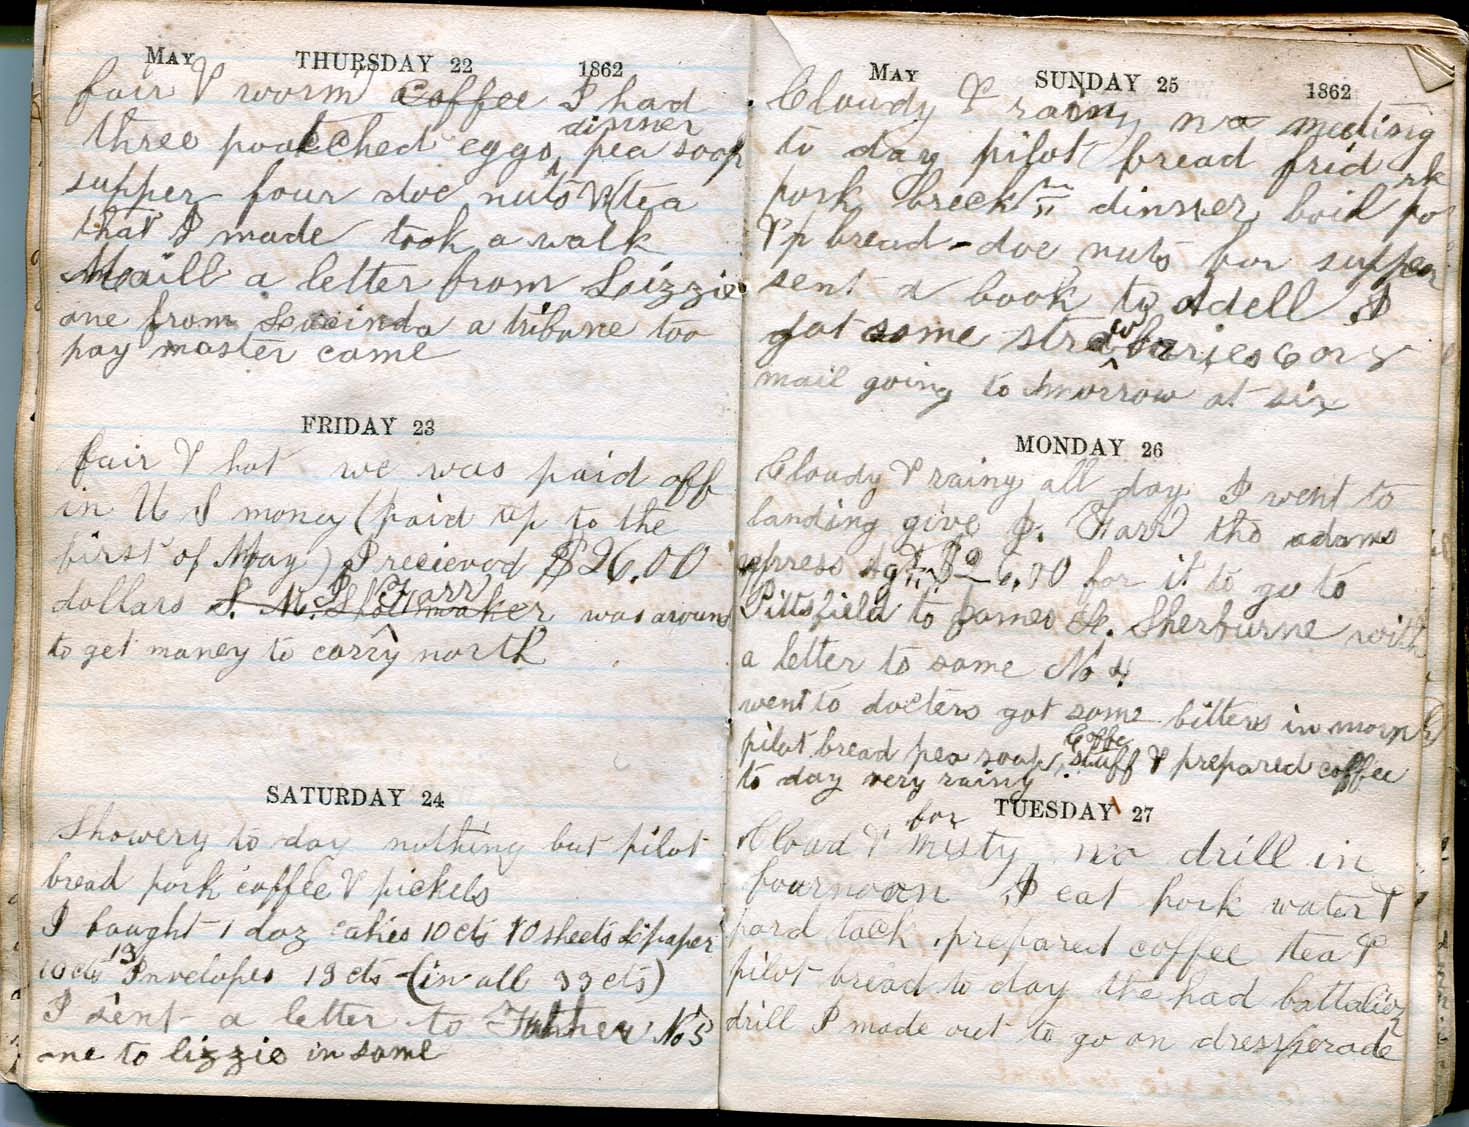 May THURSDAY 22 1862
fair & worm Coffee I had
three poatched eggs, dinner pea soop
supper four doe nuts & tea
that I made took a walk
Maill a letter from Lizzie
one from Lucinda a tribune too
pay master came
FRIDAY 23
fair & hot we was paid off
in U S money (paid up to the
first of May) I recieved $26.00
dollars S. M. Shoemaker J. Farr was around
to get money to carry north
SATURDAY 24
Showery to day nothing but pilot
bread pork coffee & pickels
I bought 1 doz cakes 10 cts 10 sheets paper
10 cts 13 Invelopes 13 cts (in all 33 cts)
I sent a letter to Father No 3
one to lizzie in same
May SUNDAY 25 1862
Cloudy & rainy no meeting
to day pilot bread frid
pork breck " dinner boid po rk
& p bread - doe nuts for supper
sent a book to Adell I
got some strawbaries 6 or 8
mail going to morrow at six
MONDAY 26
Cloudy & rainy all day I went to
landing give J. Farr the adams
express agt $ for it to go to
Pittsfield to James H. Sherburne with
a letter to same No 4
went to docters got some bitters in morn
pilot bread pea soup, Coffe stuff & prepared coffee
to day very rainy
TUESDAY 27
Cloud & misty no drill in
for
fournoon I eat pork water &
hard tack prepared coffee tea &
pilot bread to day the had battalion
drill I made out to go on dressperade